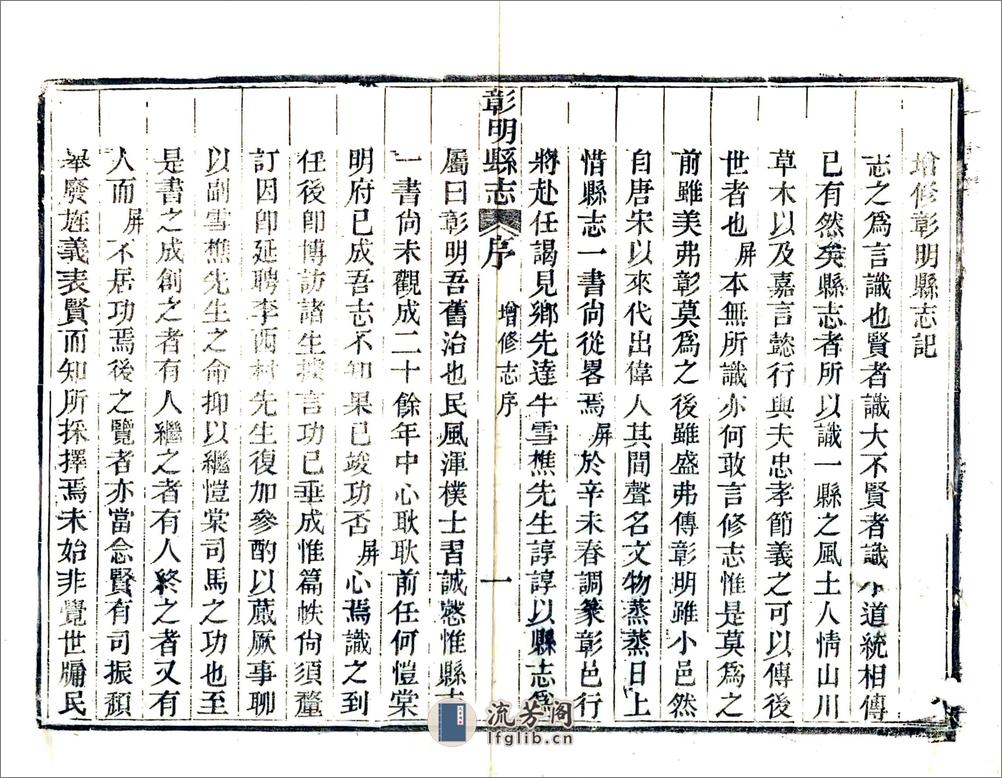 增修彰明縣志記
志之爲言識也賢者識大不賢者識小道統相傳
已有然矣縣志者所以識一縣之風土人情山川
草木以及嘉言懿行與夫忠孝節義之可以傳後
世者也屏本無所識亦何敢言修志惟是莫爲之
前雖美弗彰莫爲之後雖盛弗傳彰明雖小邑然
自唐宋以來代出偉人其間聲名文物蒸蒸日上
惜縣志一書尙從畧焉屏於辛未春調篆彰邑行
將赴任謁見鄉先達牛雪樵先生諄諄以縣志爲
彰明縣志 序 增修志序 一
屬曰彰明吾舊治也民風渾樸士習誠慤惟縣志
一書尙未觀成二十餘年中心耿耿前任何愷棠
明府已成吾志不知果已竣功否屏心焉識之到
任後卽博訪諸生僉言功已垂成惟篇帙尙須釐
訂因卽延聘李西村先生復加參酌以蕆厥事聊
以副雪樵先生之命抑以繼愷棠司馬之功也至
是書之成創之者有人繼之者有人終之者又有
人而屏不居功焉後之覽者亦當念賢有司振頹
舉廢旌義表賢而知所採擇焉未始非覺世牖民
流芳阁
lfglib.cn